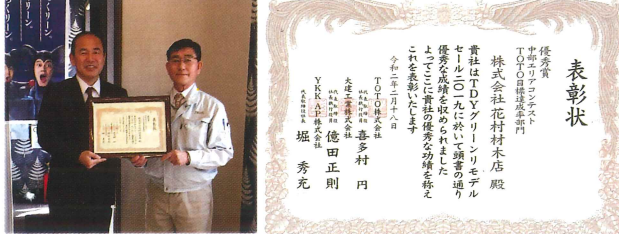 表彰状
優秀賞
中部エリアコンテスト
TOTO目標達成率部門
株式会社花村材木店 殿
貴社はTDYグリーンリモデル
セール二〇一九に於いて頭書の通り
優秀な成績を収められました
よってここに貴社の優秀な功績を称え
これを表彰いたします
令和二年二月十八日
TOTO株式会社
喜多村 円
大建工業株式会社
億田正則
YKK AP株式会社
代表取締役社長
堀 秀充